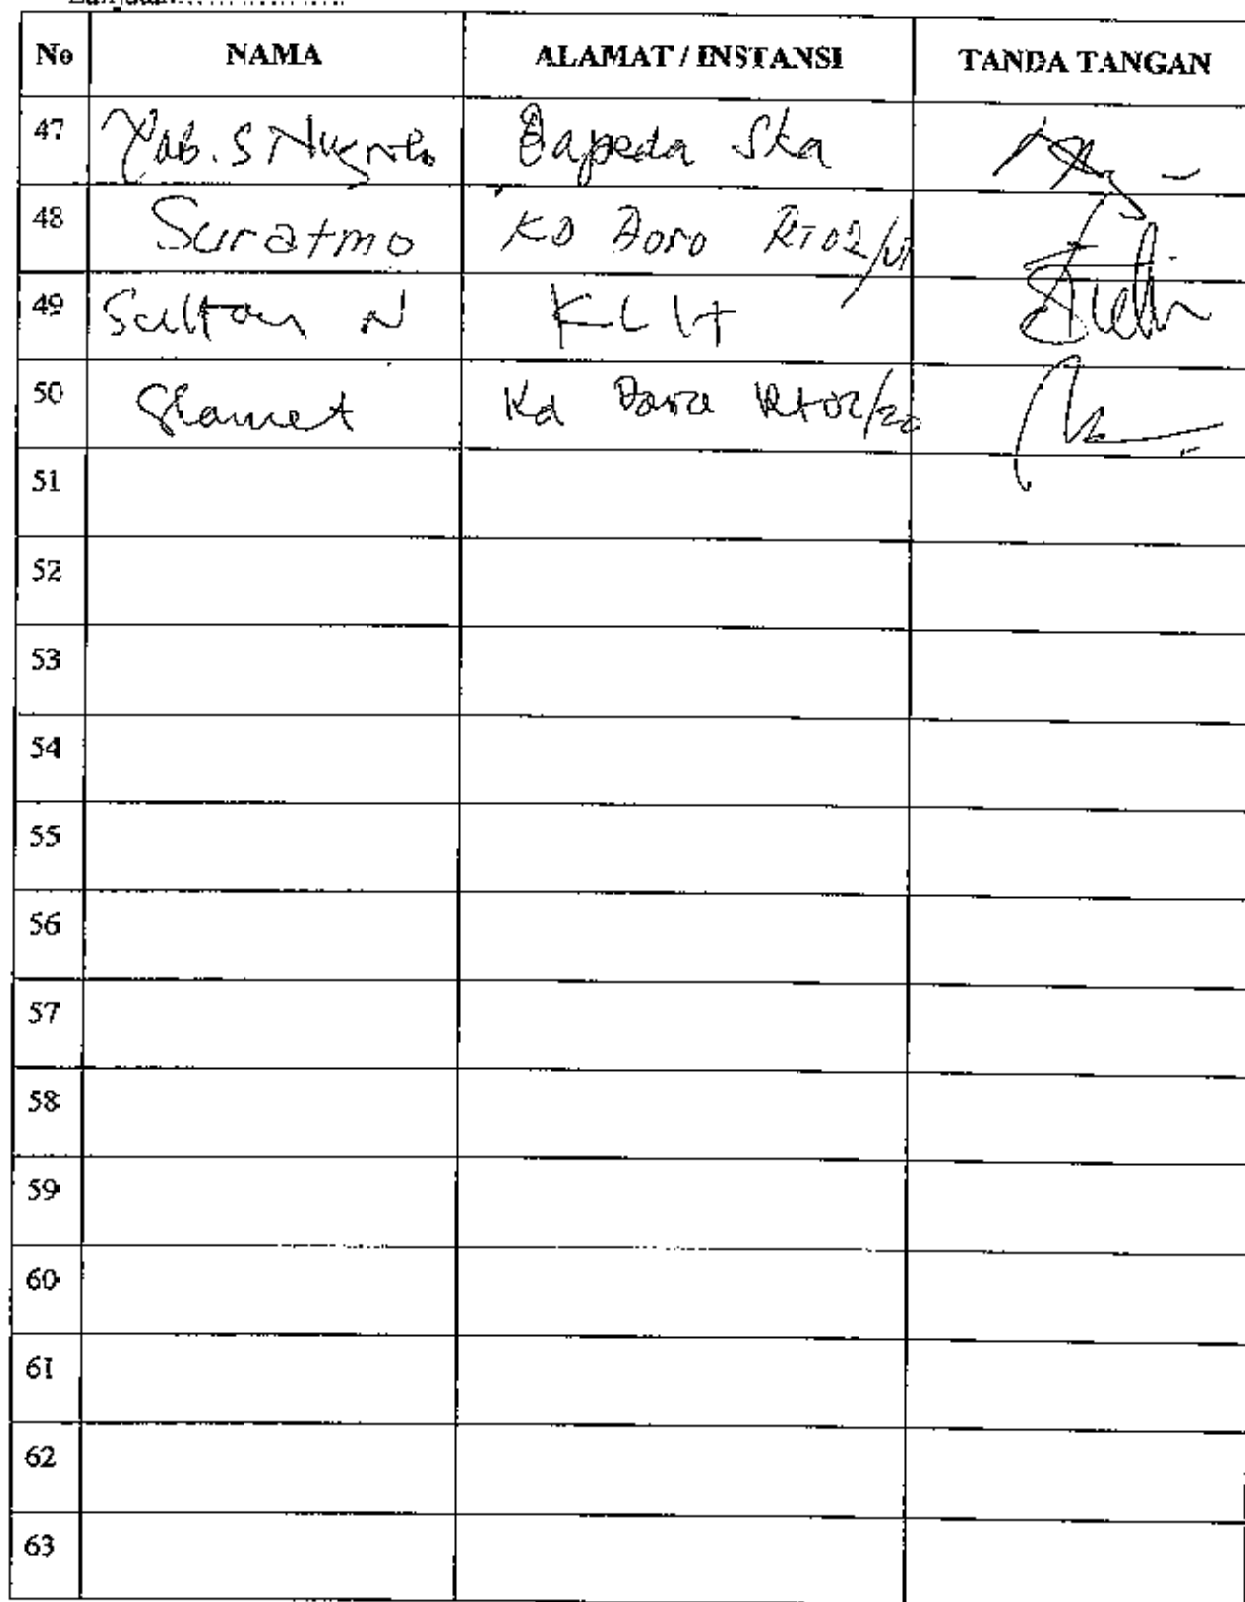 No NAMA ALAMAT / INSTANSI TANDA TANGAN
47 S Bapeda Ska
48 Suratmo KD Boro RT02/
49 Sultan N KLH
50 Slamet Kd Rt02/20
51
52
53
54
55
56
57
58
59
60
61
62
63